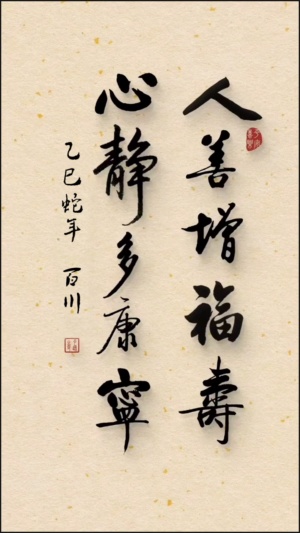 人善增福壽
心静多康寧
乙巳蛇年 百川